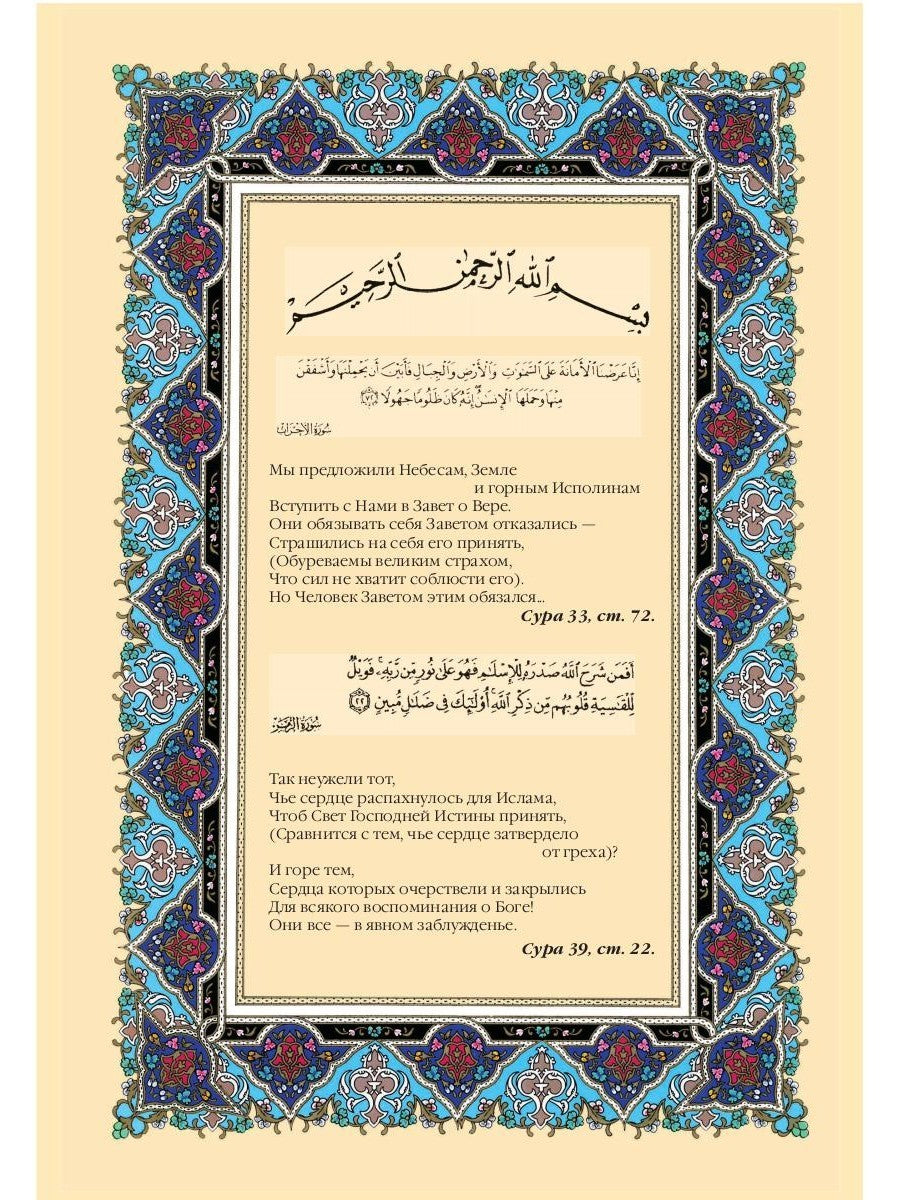 بِسْمِ ٱللَّهِ ٱلرَّحْمَٰنِ ٱلرَّحِيمِ
إِنَّا عَرَضْنَا ٱلْأَمَانَةَ عَلَى ٱلسَّمَٰوَٰتِ وَٱلْأَرْضِ وَٱلْجِبَالِ فَأَبَيْنَ أَن يَحْمِلْنَهَا وَأَشْفَقْنَ
مِنْهَا وَحَمَلَهَا ٱلْإِنسَٰنُ ۖ إِنَّهُۥ كَانَ ظَلُومًا جَهُولًا ﴿٧٢﴾
سُورَةُ الأَحْزَابِ
Мы предложили Небесам, Земле
и горным Исполинам
Вступить с Нами в Завет о Вере.
Они обязывать себя Заветом отказались —
Страшились на себя его принять,
(Обуреваемы великим страхом,
Что сил не хватит соблюсти его).
Но Человек Заветом этим обязался...
Сура 33, ст. 72.
أَفَمَن شَرَحَ ٱللَّهُ صَدْرَهُۥ لِلْإِسْلَٰمِ فَهُوَ عَلَىٰ نُورٍ مِّن رَّبِّهِۦ ۚ فَوَيْلٌ
لِّلْقَٰسِيَةِ قُلُوبُهُم مِّن ذِكْرِ ٱللَّهِ ۚ أُو۟لَٰٓئِكَ فِى ضَلَٰلٍ مُّبِينٍ ﴿٢٢﴾
سُورَةُ الزُّمَرِ
Так неужели тот,
Чье сердце распахнулось для Ислама,
Чтоб Свет Господней Истины принять,
(Сравнится с тем, чье сердце затвердело
от греха)?
И горе тем,
Сердца которых очерствели и закрылись
Для всякого воспоминания о Боге!
Они все — в явном заблужденье.
Сура 39, ст. 22.